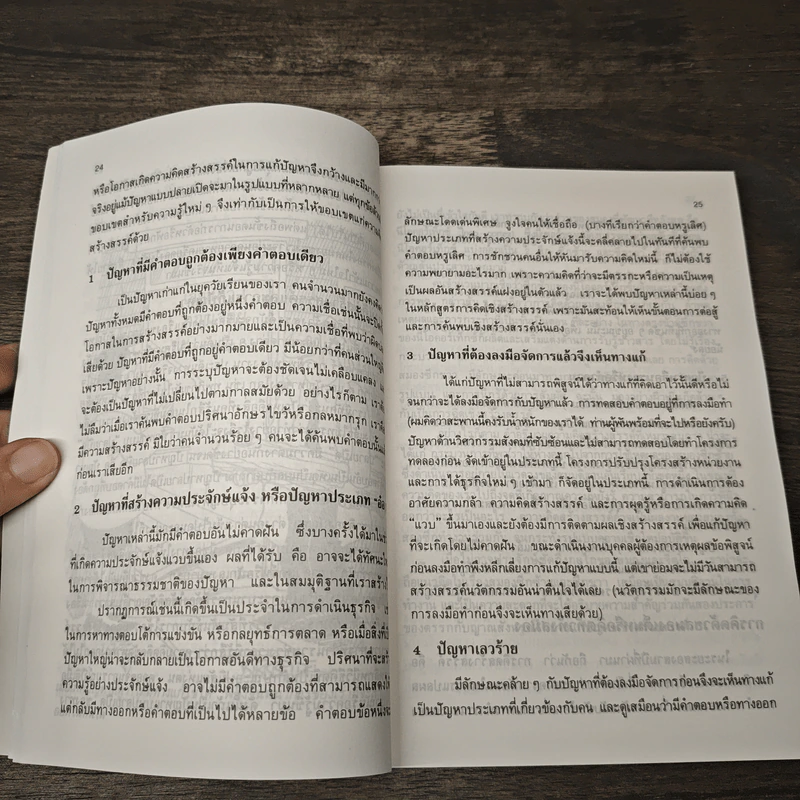 24
หรือโอกาสเกิดความคิดสร้างสรรค์ในการแก้ปัญหาจึงกว้างและมีมาก
จริงอยู่แม้ปัญหาแบบปลายเปิดจะมาในรูปแบบที่หลากหลาย แต่ทุก
ขอบเขตสำหรับความรู้ใหม่ ๆ จึงเท่ากับเป็นการให้ขอบเขตแก่ความ
สร้างสรรค์ด้วย
1 ปัญหาที่มีคำตอบถูกต้องเพียงคำตอบเดียว
เป็นปัญหาเก่าแก่ในยุควัยเรียนของเรา คนจำนวนมากยังคง
ปัญหาทั้งหมดมีคำตอบที่ถูกต้องอยู่หนึ่งคำตอบ ความเชื่อเช่นนั้นจะปิด
โอกาสในการสร้างสรรค์อย่างมากมายและเป็นความเชื่อที่พบว่าผิด
เสียด้วย ปัญหาที่มีคำตอบที่ถูกอยู่คำตอบเดียว มีน้อยกว่าที่คนส่วนใหญ่
เพราะปัญหาอย่างนั้น การระบุปัญหาจะต้องชัดเจนไม่เคลือบแคลง และ
จะต้องเป็นปัญหาที่ไม่เปลี่ยนไปตามกาลสมัยด้วย อย่างไรก็ตาม เรา
ไม่ลืมว่าเมื่อเราค้นพบคำตอบปริศนาอักษรไขว้หรือกลหมากรุก เรา
มีความสร้างสรรค์ มิใยว่าคนจำนวนร้อย ๆ คนจะได้ค้นพบคำตอบนั้น
ก่อนเราเสียอีก
2 ปัญหาที่สร้างความประจักษ์แจ้ง หรือปัญหาประเภท
ปัญหาเหล่านี้มักมีคำตอบอันไม่คาดฝัน ซึ่งบางครั้งได้มา
ที่เกิดความประจักษ์แจ้งแวบขึ้นเอง ผลที่ได้รับ คือ อาจจะได้ทัศนะ
ในการพิจารณาธรรมชาติของปัญหา และในสมมุติฐานที่เราสร้าง
ปรากฏการณ์เช่นนี้เกิดขึ้นเป็นประจำในการดำเนินธุรกิจ
ในการหาทางตอบโต้การแข่งขัน หรือกลยุทธ์การตลาด หรือเมื่อสิ่งที่
ปัญหาใหญ่น่าจะกลับกลายเป็นโอกาสอันดีทางธุรกิจ ปริศนาที่จะ
ความรู้อย่างประจักษ์แจ้ง อาจไม่มีคำตอบถูกต้องที่สามารถแสดง
แต่กลับมีทางออกหรือคำตอบที่เป็นไปได้หลายข้อ คำตอบข้อหนึ่ง
25
ลักษณะโดดเด่นพิเศษ จูงใจคนให้เชื่อถือ (บางทีเรียกว่าคำตอบหรูเลิศ)
ปัญหาประเภทที่สร้างความประจักษ์แจ้งนี้จะคลี่คลายไปในทันทีที่ค้นพบ
คำตอบหรูเลิศ การชักชวนคนอื่นให้หันมารับความคิดใหม่นี้ ก็ไม่ต้องใช้
ความพยายามอะไรมาก เพราะความคิดที่ว่าจะมีตรรกะหรือความเป็นเหตุ
เป็นผลอันสร้างสรรค์แฝงอยู่ในตัวแล้ว เราจะได้พบปัญหาเหล่านี้บ่อย ๆ
ในหลักสูตรการคิดเชิงสร้างสรรค์ เพราะมันสะท้อนให้เห็นขั้นตอนการต่อสู้
และการค้นพบเชิงสร้างสรรค์นั่นเอง
3 ปัญหาที่ต้องลงมือจัดการแล้วจึงเห็นทางแก้
ได้แก่ปัญหาที่ไม่สามารถพิสูจน์ได้ว่าทางแก้ที่คิดเอาไว้นั้นดีหรือไม่
จนกว่าจะได้ลงมือจัดการกับปัญหาแล้ว การทดสอบคำตอบอยู่ที่การลงมือทำ
(ผมคิดว่าสะพานนี้คงรับน้ำหนักของเราได้ ท่านผู้พันพร้อมที่จะไปหรือยังครับ)
ปัญหาด้านวิศวกรรมสังคมที่ซับซ้อนและไม่สามารถทดสอบโดยทำโครงการ
ทดลองก่อน จัดเข้าอยู่ในประเภทนี้ โครงการปรับปรุงโครงสร้างหน่วยงาน
และการได้ธุรกิจใหม่ ๆ เข้ามา ก็จัดอยู่ในประเภทนี้ การดำเนินการต้อง
อาศัยความกล้า ความคิดสร้างสรรค์ และการผุดรู้หรือการเกิดความคิด
"แวบ" ขึ้นมาเองและยังต้องมีการติดตามผลเชิงสร้างสรรค์ เพื่อแก้ปัญหา
ที่จะเกิดโดยไม่คาดฝัน ขณะดำเนินงานบุคคลผู้ต้องการเหตุผลข้อพิสูจน์
ก่อนลงมือทำพึงหลีกเลี่ยงการแก้ปัญหาแบบนี้ แต่เขาย่อมจะไม่มีวันสามารถ
สร้างสรรค์นวัตกรรมอันน่าตื่นใจได้เลย (นวัตกรรมมักจะมีลักษณะของ
การลงมือทำก่อนจึงจะเห็นทางเสียด้วย)
4 ปัญหาเลวร้าย
มีลักษณะคล้าย ๆ กับปัญหาที่ต้องลงมือจัดการก่อนจึงจะเห็นทางแก้
เป็นปัญหาประเภทที่เกี่ยวข้องกับคน และดูเสมือนว่ามีคำตอบหรือทางออก